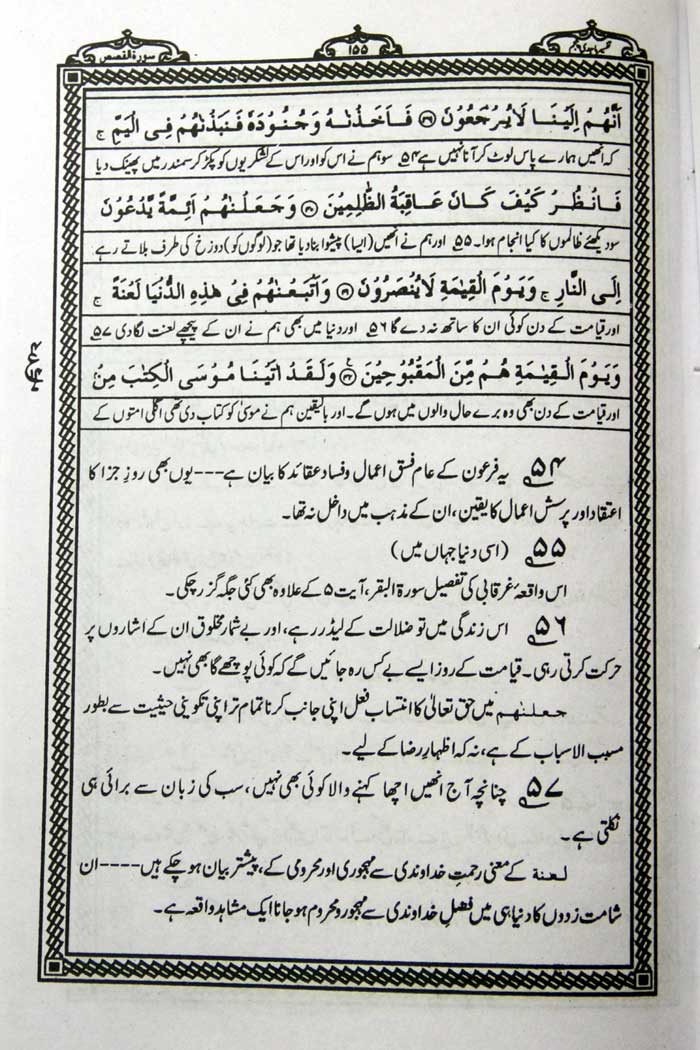 تفسیر ماجدی پنجم
۱۵۵
سورۃ القصص
اَنَّهُمْ اِلَيْنَا لَا يُرْجَعُوْنَ ﴿۳۹﴾ فَاَخَذْنٰهُ وَجُنُوْدَهٗ فَنَبَذْنٰهُمْ فِى الْيَمِّ ج
کہ انھیں ہمارے پاس لوٹ کر آنا نہیں ہے ۵۴ سو ہم نے اس کو اور اس کے لشکریوں کو پکڑ کر سمندر میں پھینک دیا
فَانْظُرْ كَيْفَ كَانَ عَاقِبَةُ الظّٰلِمِيْنَ ﴿۴۰﴾ وَجَعَلْنٰهُمْ اَئِمَّةً يَّدْعُوْنَ
سو دیکھئے ظالموں کا کیا انجام ہوا۔ ۵۵ اور ہم نے انھیں (ایسا) پیشوا بنا دیا تھا جو (لوگوں کو) دوزخ کی طرف بلاتے رہے
اِلَى النَّارِ ج وَيَوْمَ الْقِيٰمَةِ لَا يُنْصَرُوْنَ ﴿۴۱﴾ وَاَتْبَعْنٰهُمْ فِىْ هٰذِهِ الدُّنْيَا لَعْنَةً ج
اور قیامت کے دن کوئی ان کا ساتھ نہ دے گا ۵۶ اور دنیا میں بھی ہم نے ان کے پیچھے لعنت لگا دی ۵۷
وَيَوْمَ الْقِيٰمَةِ هُمْ مِّنَ الْمَقْبُوْحِيْنَ ﴿۴۲﴾ وَلَقَدْ اٰتَيْنَا مُوْسَى الْكِتٰبَ مِنْۢ
اور قیامت کے دن بھی وہ برے حال والوں میں ہوں گے۔ اور بالیقین ہم نے موسیٰ کو کتاب دی تھی اگلی امتوں کے
۵۴ یہ فرعون کے عام فسق اعمال و فساد عقائد کا بیان ہے --- یوں بھی روزِ جزا کا
اعتقاد اور پرسش اعمال کا یقین، ان کے مذہب میں داخل نہ تھا۔
۵۵ (اسی دنیا جہاں میں)
اس واقعۂ غرقابی کی تفصیل سورۃ البقر، آیت ۵ کے علاوہ بھی کئی جگہ گزر چکی۔
۵۶ اس زندگی میں تو ضلالت کے لیڈر رہے، اور بے شمار مخلوق ان کے اشاروں پر
حرکت کرتی رہی۔ قیامت کے روز ایسے بے کس رہ جائیں گے کہ کوئی پوچھے گا بھی نہیں۔
جعلنٰهم میں حق تعالیٰ کا انتساب فعل اپنی جانب کرنا تمام تر اپنی تکوینی حیثیت سے بطور
مسبب الاسباب کے ہے، نہ کہ اظہارِ رضا کے لیے۔
۵۷ چنانچہ آج انھیں اچھا کہنے والا کوئی بھی نہیں، سب کی زبان سے برائی ہی
نکلتی ہے۔
لعنة کے معنی رحمتِ خداوندی سے مہجوری اور محرومی کے، پیشتر بیان ہو چکے ہیں ---- ان
شامت زدوں کا دنیا ہی میں فضلِ خداوندی سے مہجور و محروم ہو جانا ایک مشاہد واقعہ ہے۔